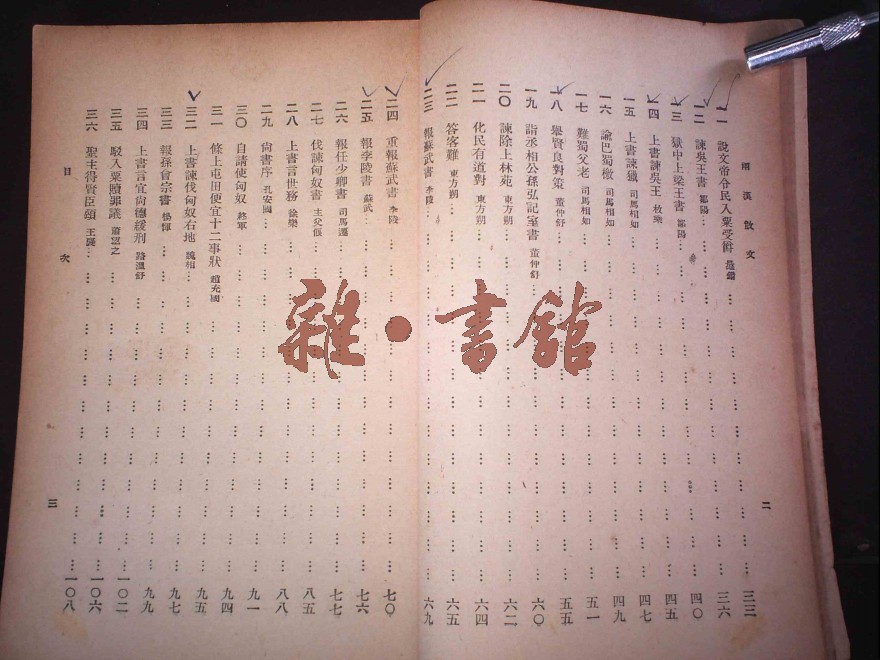 兩漢散文
二
一一 說文帝令民入粟受爵 鼂錯 … 三三
一二 諫吳王書 鄒陽 … 三六
一三 獄中上梁王書 鄒陽 … 四〇
一四 上書諫吳王 枚乘 … 四五
一五 上書諫獵 司馬相如 … 四七
一六 諭巴蜀檄 司馬相如 … 四九
一七 難蜀父老 司馬相如 … 五一
一八 舉賢良對策 董仲舒 … 五五
一九 詣丞相公孫弘記室書 董仲舒 … 六〇
二〇 諫除上林苑 東方朔 … 六二
二一 化民有道對 東方朔 … 六四
二二 答客難 東方朔 … 六五
二三 報蘇武書 李陵 … 六九
二四 重報蘇武書 李陵 … 七〇
二五 報李陵書 蘇武 … 七六
二六 報任少卿書 司馬遷 … 七七
二七 伐諫匈奴書 主父偃 … 八五
二八 上書言世務 徐樂 … 八八
二九 尙書序 孔安國 … 九一
三〇 自請使匈奴 終軍 … 九四
三一 條上屯田便宜十二事狀 趙充國 … 九五
三二 上書諫伐匈奴右地 魏相 … 九七
三三 報孫會宗書 楊惲 … 九九
三四 上書言宜尙德緩刑 路溫舒 … 一〇二
三五 駁入粟贖罪議 蕭望之 … 一〇六
三六 聖主得賢臣頌 王襃 … 一〇八
目次
三
雜·書館